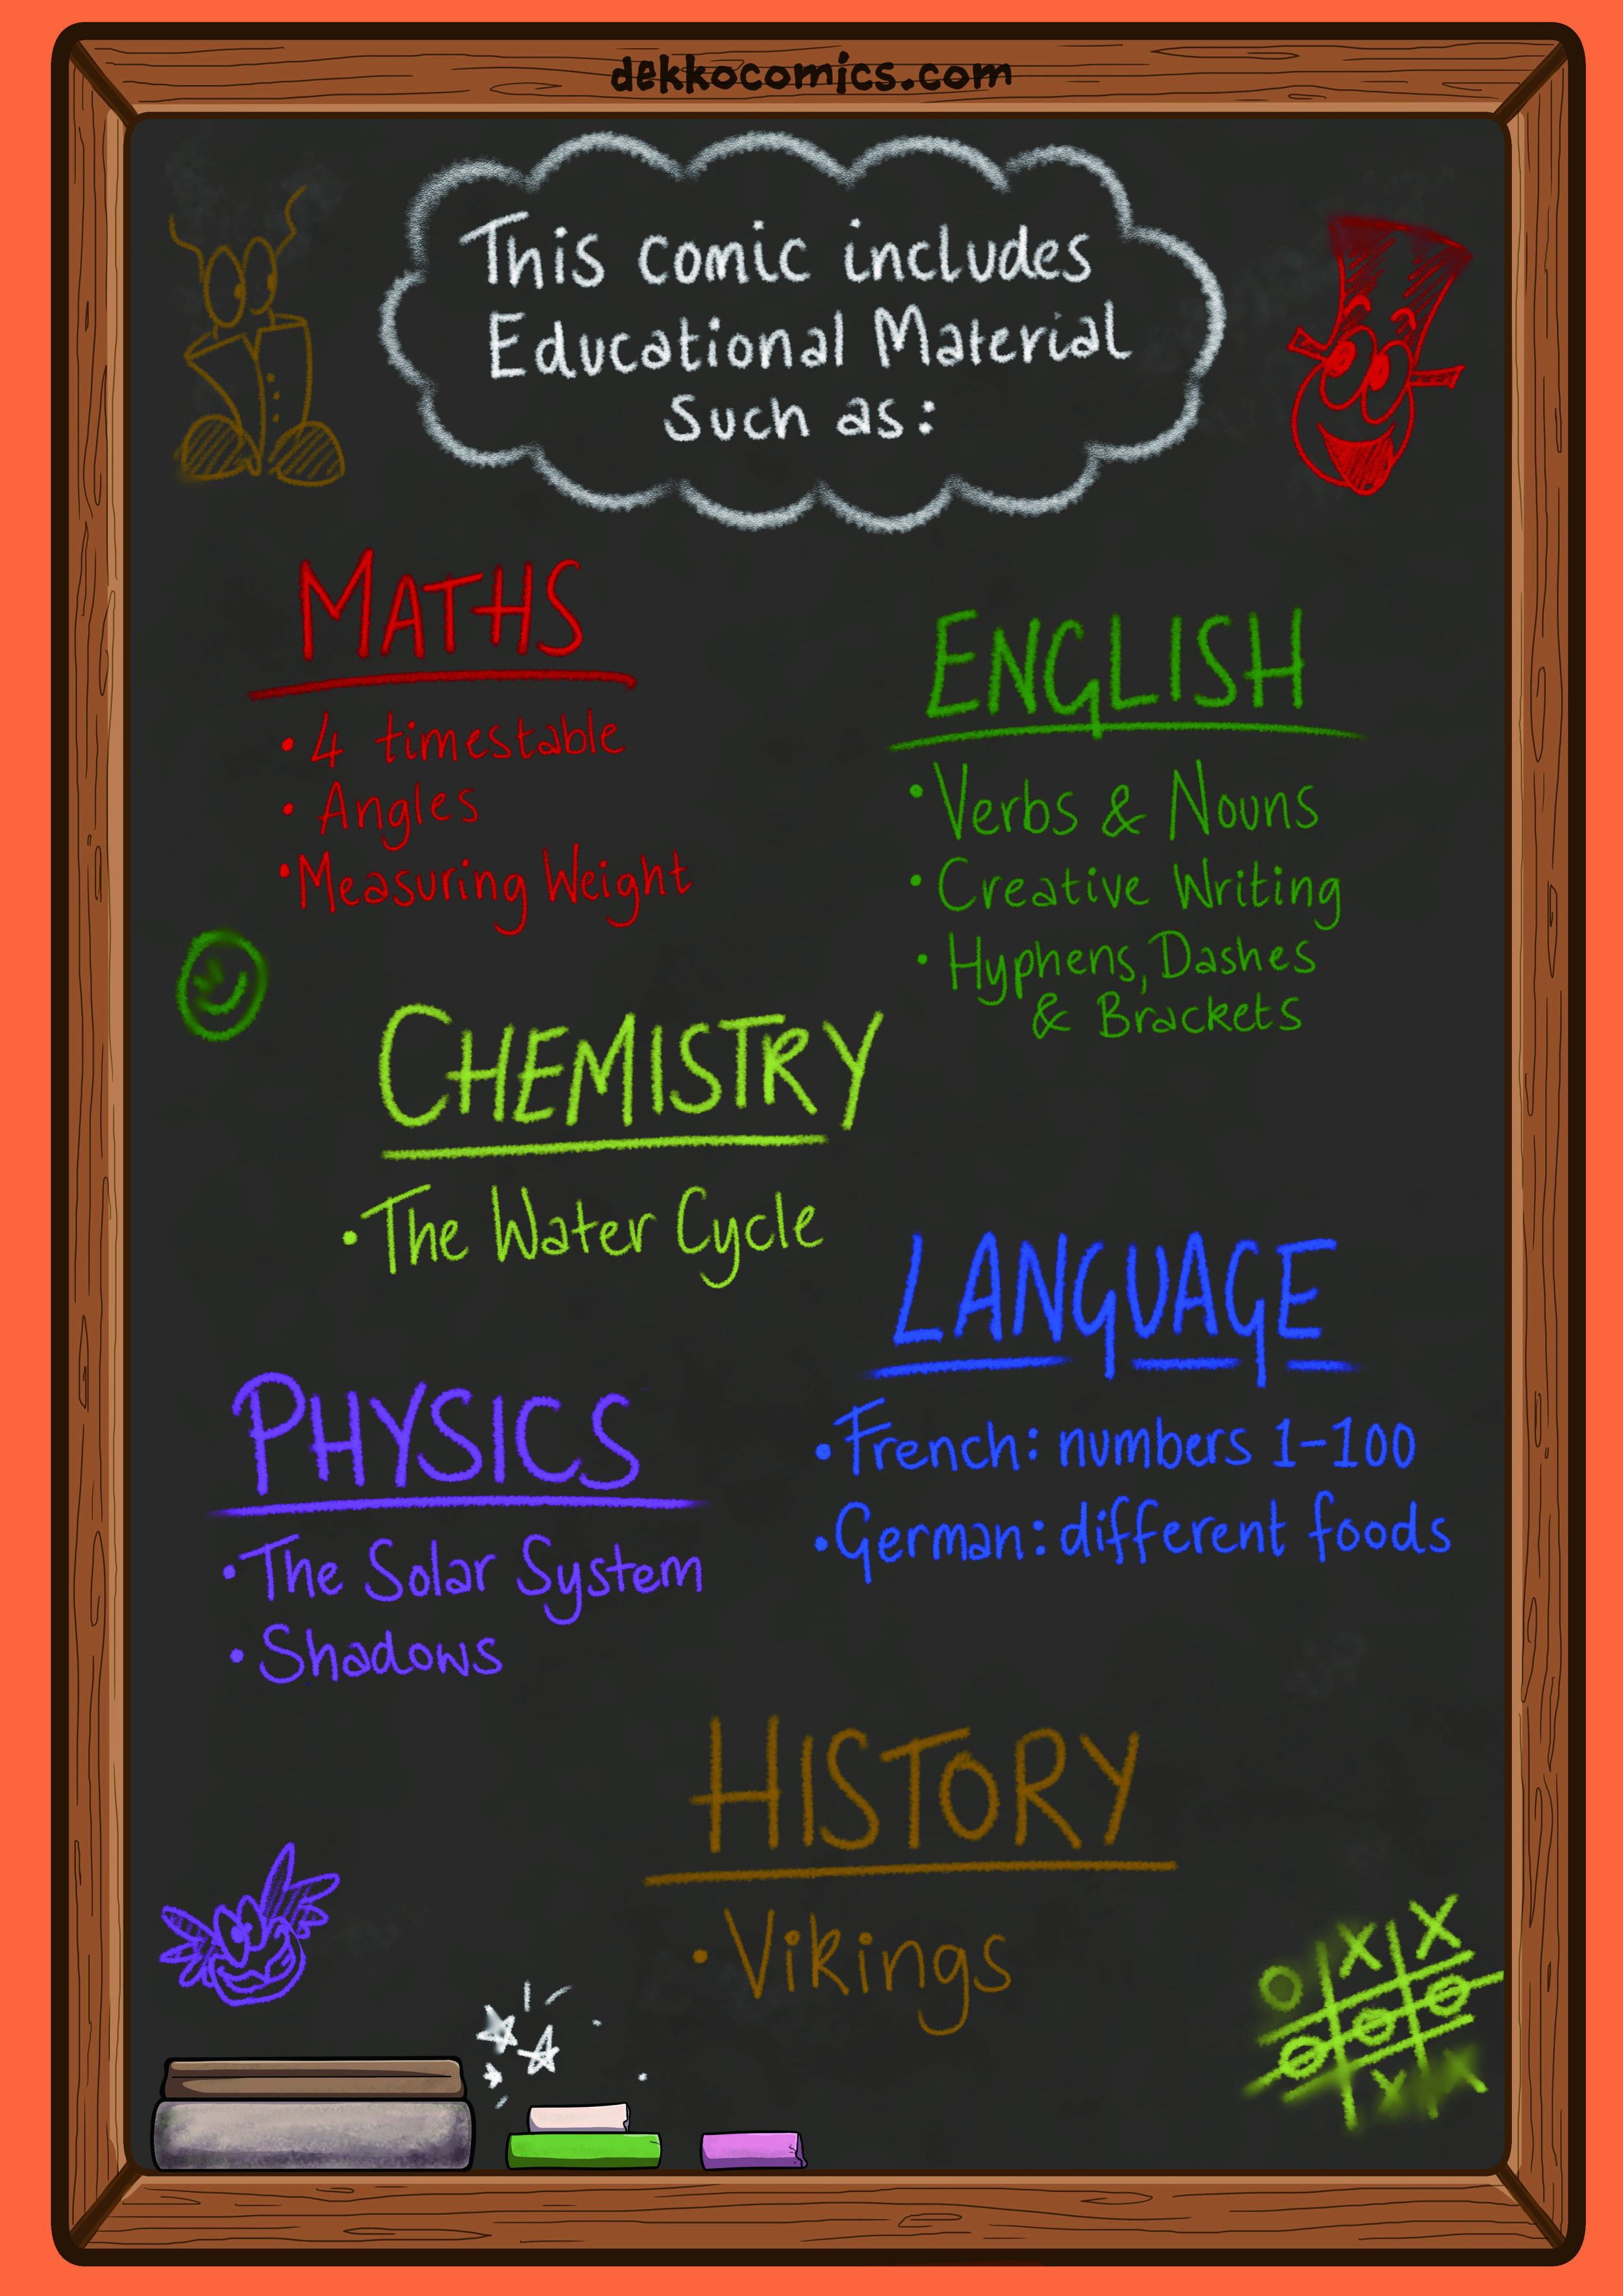 dekkocomics.com
This comic includes
Educational Material
Such as:
MATHS
• 4 timestable
• Angles
• Measuring Weight
ENGLISH
• Verbs & Nouns
• Creative Writing
• Hyphens, Dashes
& Brackets
CHEMISTRY
• The Water Cycle
LANGUAGE
• French: numbers 1-100
• German: different foods
PHYSICS
• The Solar System
• Shadows
HISTORY
• Vikings
O X X
O O O
X X